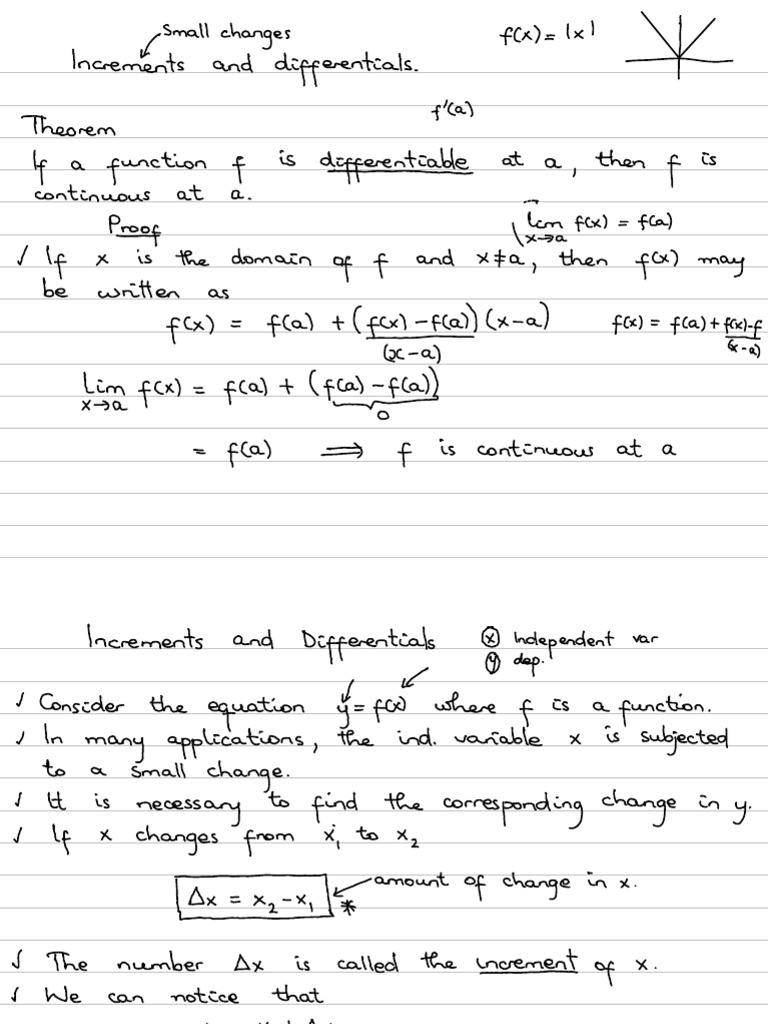 Small changes
f(x) = |x|
Increments and differentials.
f'(a)
Theorem
If a function f is differentiable at a, then f is
continuous at a.
Proof
lim f(x) = f(a)
x→a
✓ If x is the domain of f and x≠a, then f(x) may
be written as
f(x) = f(a) + (f(x) - f(a)) (x-a)
(x-a)
f(x) = f(a) + f(x)-f
(x-a)
Lim f(x) = f(a) + (f(a) - f(a))
x→a
0
= f(a) ⟹ f is continuous at a
Increments and Differentials
ⓧ Independent var
ⓨ dep.
✓ Consider the equation y = f(x) where f is a function.
✓ In many applications, the ind. variable x is subjected
to a small change.
✓ It is necessary to find the corresponding change in y.
✓ If x changes from x₁ to x₂
Δx = x₂ - x₁
* amount of change in x.
✓ The number Δx is called the increment of x.
✓ We can notice that